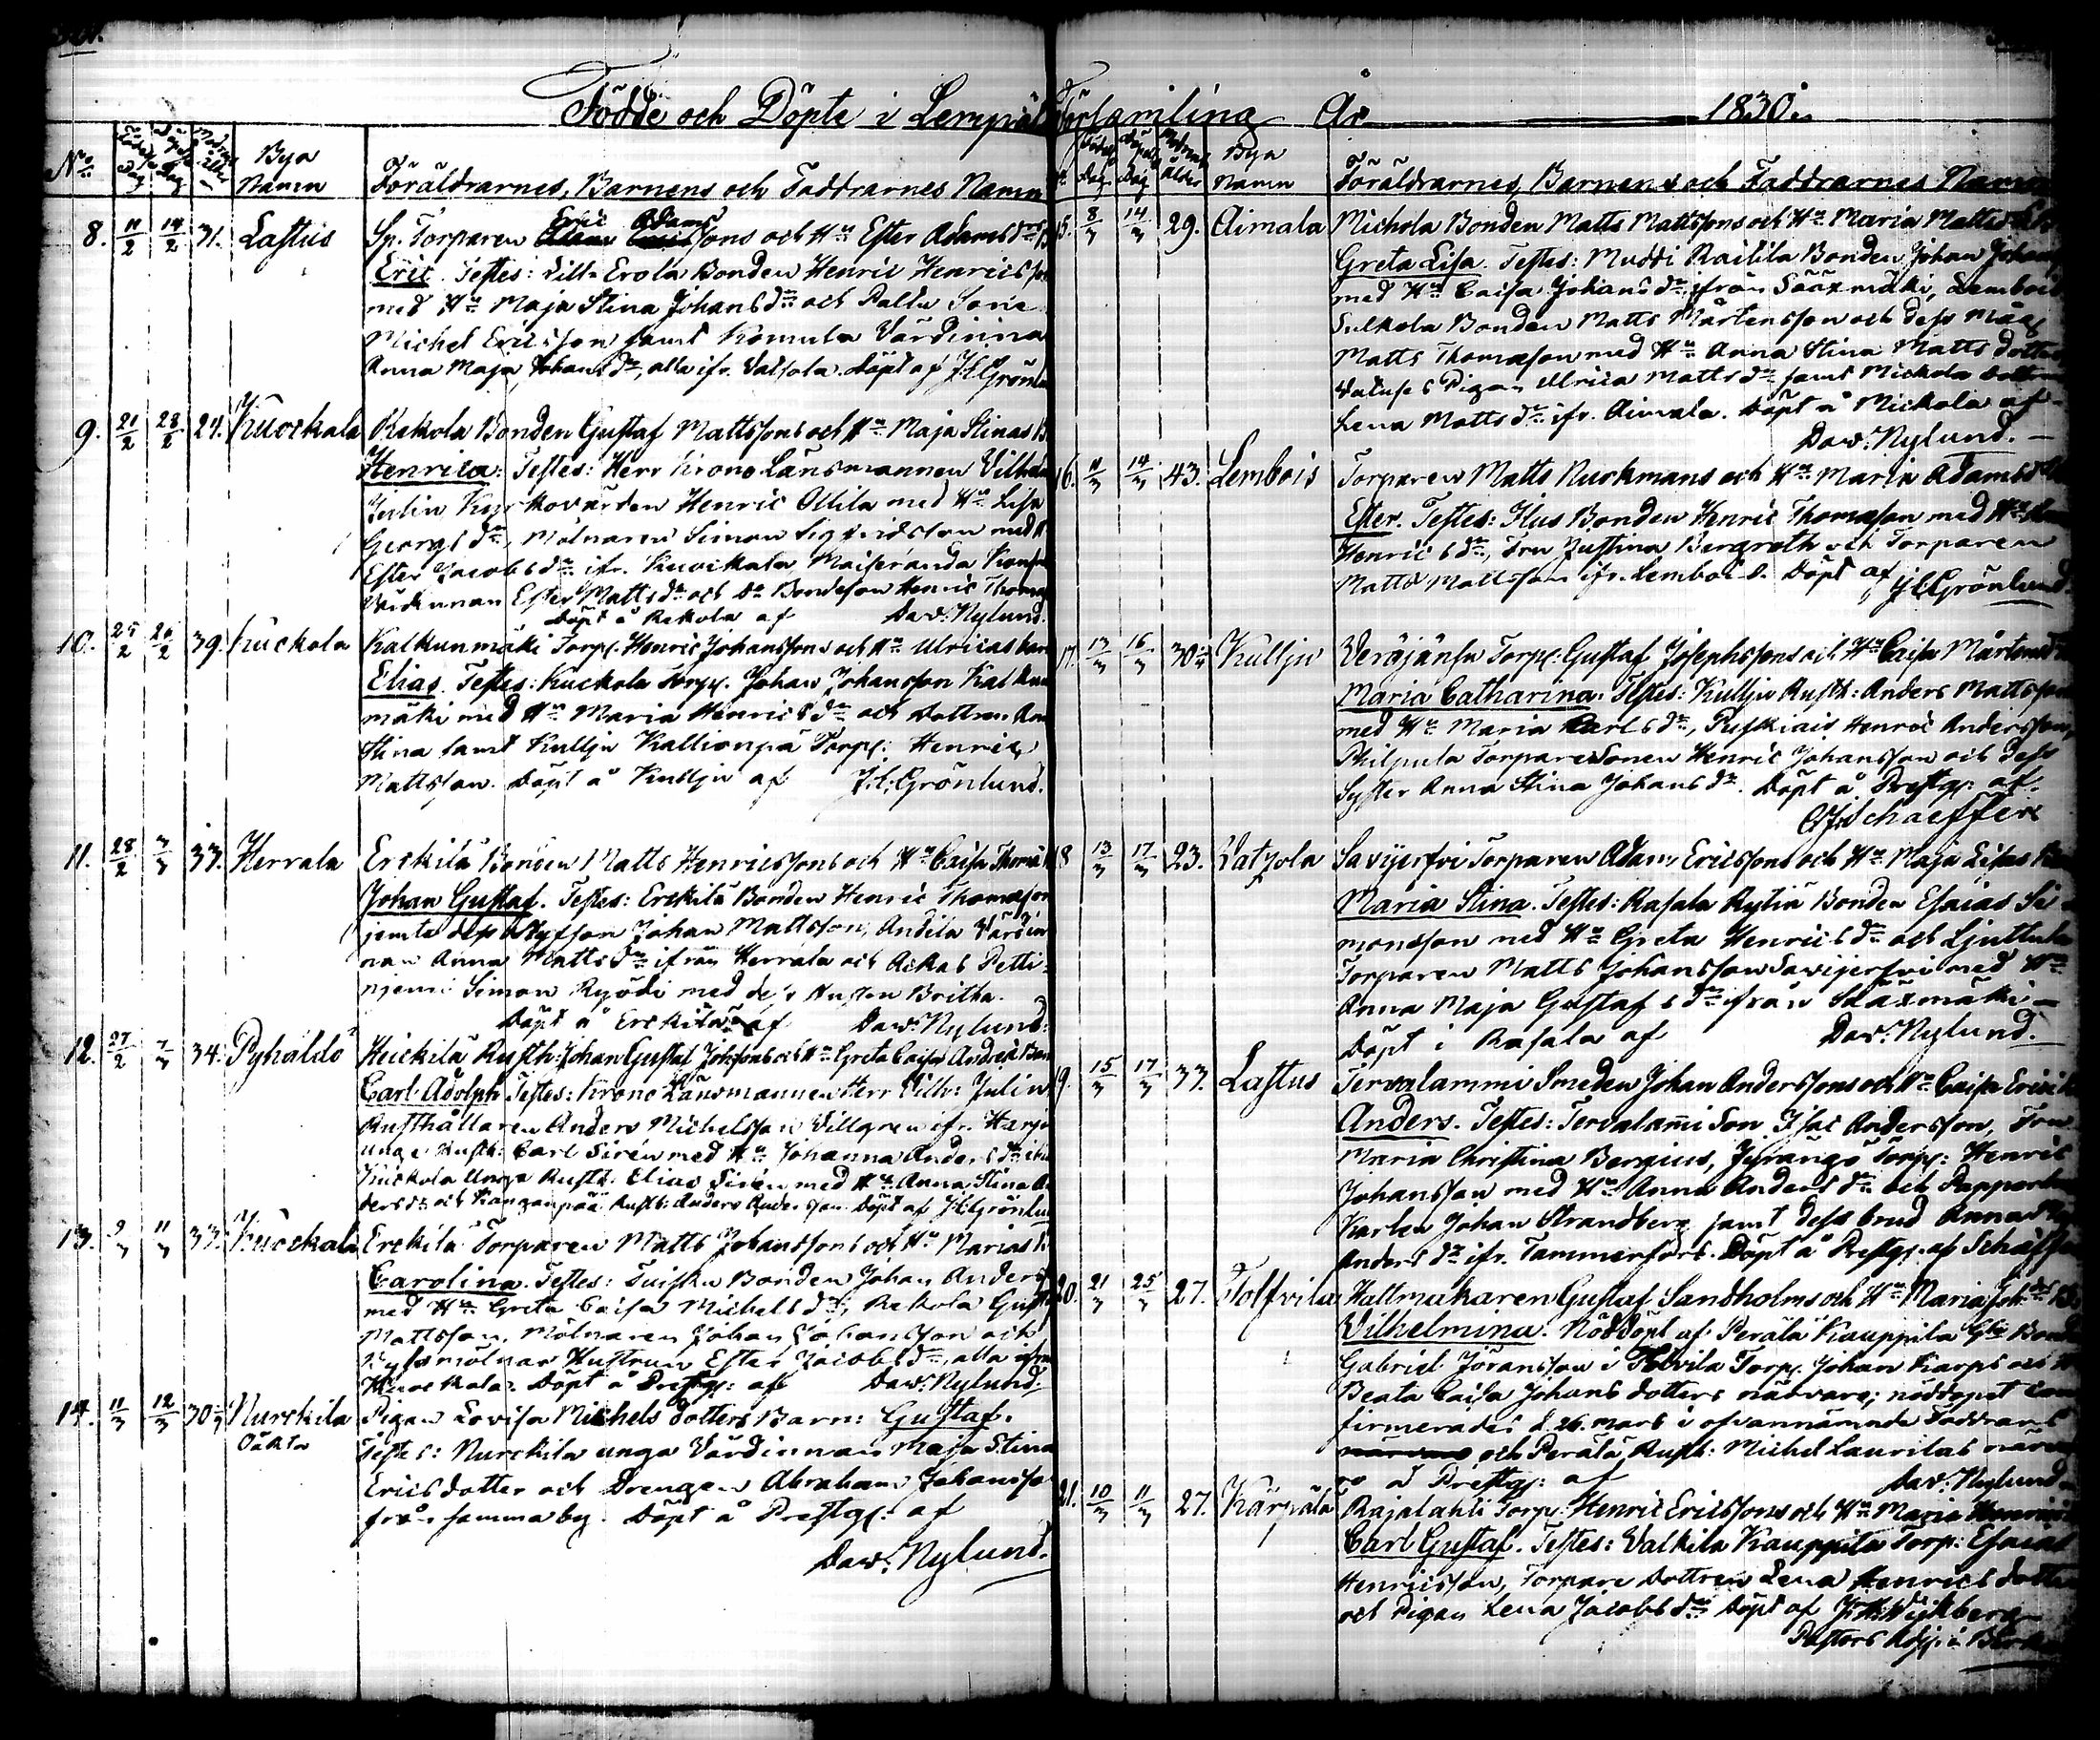 Födde och Döpte i Lempäl
No Födelse Dag Döpelse Dag Modrens ålder Bya Namn Föräldrarnes, Barnens och Faddrarnes Namn
8. 11/2 14/2 31. Lastus Sp. Torparen Eric Adamssons och Hu Ester Adams dr
Eric. Testes: Lill Erola Bonden Henric Henrics son
med Hu Maja Stina Johans dr och Sone
Michel Ericsson samt Komula Värdinna
Anna Maja Johans dr, alla ifr. Vatsola. Döpt af J.C. Grönlu
9. 21/2 28/2 24. Kuockala Rekola Bonden Gustaf Mattssons och Hu Maja Stinas B
Henrica: Testes: Herr Krono Länsmannen Vilhelm
Julin Kyrkovärden Henric Ollila med Hu Lisa
Georgs dr, Mölnaren Simon Sigfridsson med H
Ester Jacobs dr ifr. Kuockala,
Värdinnan Ester Matts dr och Bondeson Henric Thomas
Döpt å Rekola af Dav: Nylund.
10. 25/2 26/2 39. Kuckola Kalkunmäki Torp. Henric Johanssons och Hu Ulricas barn
Elias. Testes: Kuckola Torp. Johan Johansson Kalkun
mäki med Hu Maria Henrics dr och Dottren Ann
Stina samt Kulju Kallionpä Torp: Henric
Mattsson. Döpt å Kulju af J.C. Grönlund.
11. 28/2 3/3 33. Herrala Erckilä Bonden Matts Henricssons och Hu Caisa Thomæ
Johan Gustaf. Testes: Erckilä Bonden Henric Thomæson
jemte dess Styfson Johan Mattsson, Andila Värdin
nan Anna Matts dr ifrån Herrala och Askas Petti
njemi Simon Ryödi med dess Hustru Britha.
Döpt å Erckilä af Dav: Nylund.
12. 27/2 7/3 34. Pyhäldö Heickilä Rusth: Johan Gustaf Johssons och Hu Greta Caisa Andreæ Barn
Carl Adolph Testes: Krono Länsmannen Herr Vilh: Julin
Rusthållaren Anders Michelsson Villgren ifr. Harju
unge Rusth: Carl Sirén med Hu Johanna Anders dr
Kuckola Unge Rusth. Elias Sirén med Hu Anna Stina An
ders dr och Kanganpää Rusth: Anders Andersson Döpt af J.C. Grönlu
13. 9/3 11/3 33. Kuockala Erckilä Torparen Matts Johanssons och Hu Marias B
Carolina. Testes: Tuisku Bonden Johan Anders
med Hu Greta Caisa Michels dr, Rekola Gust
Mattsson, Mölnaren Johan Johansson och
mölnar Hustrun Ester Jacobs dr, alla ifrån
Kuockala. Döpt å Prestg: af Dav: Nylund.
14. 11/3 12/3 30 Nurckila Pigan Lovisa Michels dotters Barn: Gustaf.
Oäkta Testes: Nurckila unga Värdinnan Maja Stina
Ericsdotter och Drengen Abraham Johansso
från samma by. Döpt å Prestg: af
Dav: Nylund.
Församling År 1830.
Födelse Dag Döpelse Dag Modrens Ålder Bya Namn Föräldrarnes, Barnens och Faddrarnes Namn
15. 8/3 14/3 29. Aimala Michola Bonden Matts Mattssons och Hu Maria Matts
Greta Lisa. Testes: Muddi Railila Bonden Johan Johan
med Hu Caisa Johans dr ifrån Sääxmäki, Lembois
Sulkola Bonden Matts Mårtensson och dess Måg
Matts Thomæson med Hu Anna Stina Matts dotter
Pigan Ulrica Matts dr samt Mickola Dottren
Lena Matts dr ifr. Aimala. Döpt å Mickola af
Dav: Nylund.
16. 11/3 14/3 43. Lembois Torparen Matts Ruckmans och Hu Maria Adams dr
Ester. Testes: Ilus Bonden Henric Thomæson med Hu
Henrics dr, Fru Justina Bergroth och Torparen
Matts Mattsson ifr. Lembois. Döpt af J.C. Grönlund.
17. 13/3 16/3 30 Kullju Veräjänsu Torp: Gustaf Josephssons och Hu Caisa Mårtens d
Maria Catharina. Testes: Kullju Rusth: Anders Mattsson
med Hu Maria Carls dr, Henric Andersson,
Philpula Torparesonen Henric Johansson och dess
Syster Anna Stina Johans dr. Döpt å Prestg: af
Schaeffer
18 13/3 17/3 23. Vatzola Savijerfvi Torparen Adam Ericssons och Hu Maja Lisas
Maria Stina. Testes: Rasala Rytiä Bonden Esaias Si
monsson med Hu Greta Henrics dr och Ljuttula
Torparen Matts Johansson Savijerfvi med Hu
Anna Maja Gustafs dr ifrån Sääxmäki
Döpt i Rasala af Dav: Nylund.
19. 15/3 17/3 33. Lastus Tervalammi Smeden Johan Anderssons och Hu Caisa Erics
Anders. Testes: Tervalami Son Isac Andersson, Fru
Maria Christina Bergius, Torp: Henric
Johansson med Hu Anna Anders dr och Pappers
Karlen Johan Strandberg samt dess brud Anna
Anders dr ifr. Tammerfors. Döpt å Prestg: af Schäffer
20. 21/3 25/3 27. Tolfvila Hattmakaren Gustaf Sandholms och Hu Maria Joh:
Vilhelmina. Nöddöpt af Perälä Kauppila Bond
Gabriel Jöransson i Tolvila Torp. Johan Karps och
Beata Caisa Johans dotters närvaro; nöddopet con
firmerades d. 26 mars i ofvannämnda Faddrars
och Perälä Rusth: Michel Laurilas närva
ro å Prestg: af Dav: Nylund
21. 10/3 11/3 27. Kärpälä Rajalahti Torp: Henric Ericssons och Hu Maria Henrics
Carl Gustaf. Testes: Valkila Kauppila Torp: Esaias
Henricsson, Torpare Dottren Lena Henrics dotter
och Pigan Lena Jacobs dr Döpt af
Pastors Adj: i